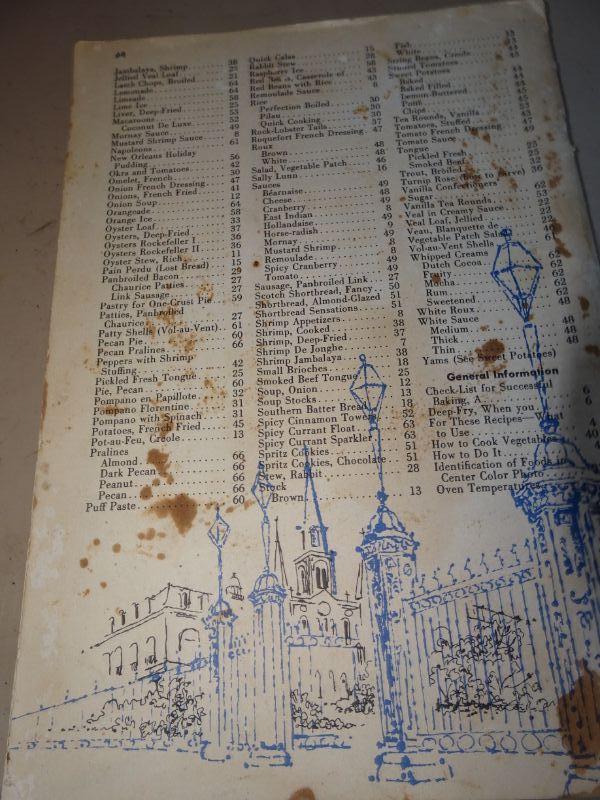 68
Jambalaya, Shrimp 38
Jellied Veal Loaf 23
Lamb Chops, Broiled 21
Lemonade 64
Limeade 64
Lime Ice 58
Liver, Deep-Fried 25
Macaroons 53
Coconut De Luxe 52
Mornay Sauce 49
Mustard Shrimp Sauce 8
Napoleons 61
New Orleans Holiday
Pudding 56
Okra and Tomatoes 42
Omelet, French 30
Onion French Dressing 47
Onions, French Fried 41
Onion Soup 12
Orangeade 64
Orange Ice 58
Oyster Loaf 33
Oysters, Deep-Fried 37
Oysters Rockefeller I 36
Oysters Rockefeller II 36
Oyster Stew, Rich 11
Pain Perdu (Lost Bread) 15
Panbroiled Bacon 29
Chaurice Patties 27
Link Sausage 27
Pastry for One-Crust Pie 59
Patties, Panbroiled
Chaurice 27
Patty Shells (Vol-au-Vent) 61
Pecan Pie 60
Pecan Pralines 66
Peppers with Shrimp
Stuffing 42
Pickled Fresh Tongue 25
Pie, Pecan 60
Pompano en Papillote 32
Pompano Florentine 31
Pompano with Spinach 31
Potatoes, French Fried 45
Pot-au-Feu, Creole 13
Pralines
Almond 66
Dark Pecan 66
Peanut 66
Pecan 66
Puff Paste 60
Quick Calas 15
Rabbit Stew 28
Raspberry Ice 58
Red Casserole of 43
Red Beans with Rice 43
Remoulade Sauce 8
Rice
Perfection Boiled 30
Pilau 30
Quick Cooking 30
Rock-Lobster Tails 37
Roquefort French Dressing 47
Roux
Brown 48
White 48
Salad, Vegetable Patch 46
Sally Lunn 16
Sauces
Béarnaise 49
Cheese 49
Cranberry 8
East Indian 49
Hollandaise 9
Horse-radish 49
Mornay 49
Mustard Shrimp 8
Remoulade 8
Spicy Cranberry 49
Tomato 49
Sausage, Panbroiled Link 27
Scotch Shortbread, Fancy 50
Shortbread, Almond-Glazed 51
Shortbread Sensations 51
Shrimp Appetizers 8
Shrimp, Cooked 38
Shrimp, Deep-Fried 37
Shrimp De Jonghe 7
Shrimp Jambalaya 38
Small Brioches 18
Smoked Beef Tongue 25
Soup, Onion 12
Soup Stocks 13
Southern Batter Bread 18
Spicy Cinnamon Towers 52
Spicy Currant Float 63
Spicy Currant Sparkler 63
Spritz Cookies 51
Spritz Cookies, Chocolate 51
Stew, Rabbit 28
Stock
Brown 13
Fish 13
White 13
String Beans, Creole 44
Stuffed Tomatoes 43
Sweet Potatoes
Baked 44
Baked Filled 44
Lemon-Buttered 45
Puffs
Chips 45
Tea Rounds, Vanilla
Tomatoes, Stuffed 43
Tomato French Dressing 47
Tomato Sauce 49
Tongue
Pickled Fresh 25
Smoked Beef 25
Trout, Broiled 32
Turnip Rose, (How to Carve) 36
Vanilla Confectioners'
Sugar 62
Vanilla Tea Rounds 53
Veal in Creamy Sauce 22
Veal Loaf, Jellied 23
Veau, Blanquette de 22
Vegetable Patch Salad 46
Vol-au-Vent Shells 61
Whipped Creams
Dutch Cocoa 62
Fruity 62
Mocha 62
Rum 62
Sweetened 62
White Roux 48
White Sauce
Medium 48
Thick 48
Thin 48
Yams (See Sweet Potatoes)
General Information
Check-List for Successful
Baking, A 6
Deep-Fry, When you 6
For These Recipes—What
to Use 4
How to Cook Vegetables 40
How to Do It 4
Identification of Foods in
Center Color Photo
Oven Temperatures